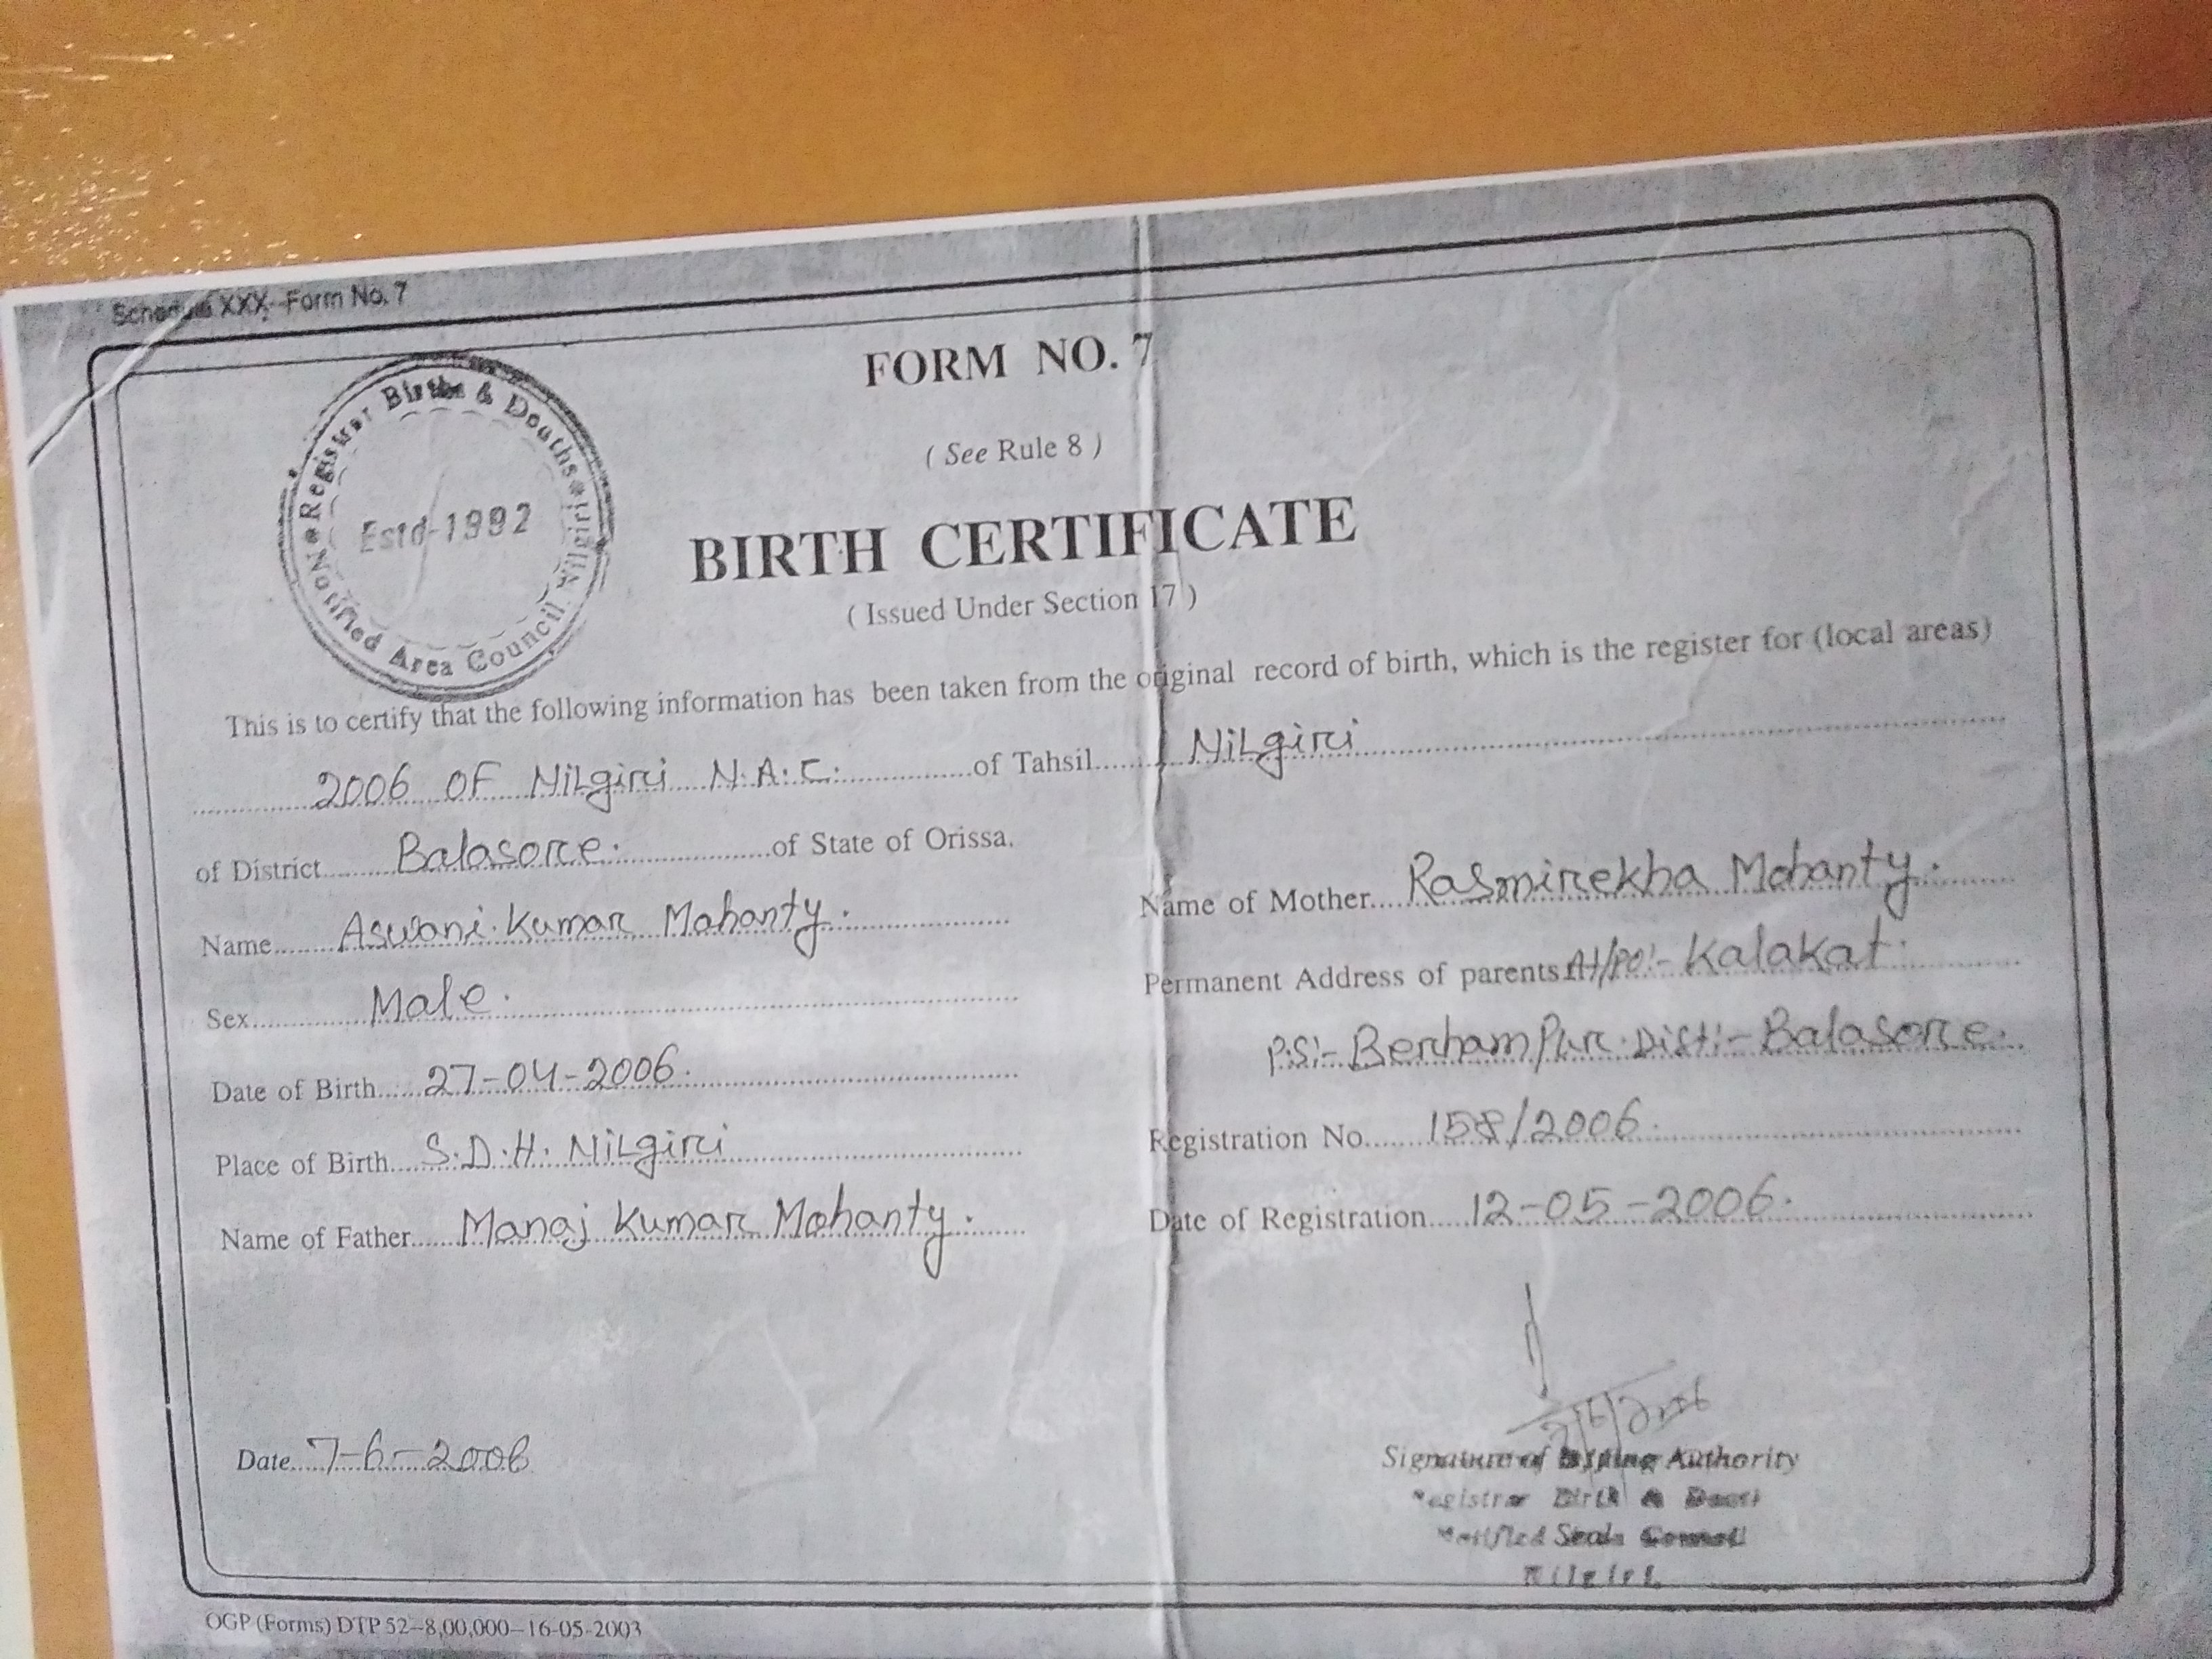 Schedule XXX, Form No. 7
FORM NO. 7
( See Rule 8 )
Registrar Births & Deaths
Notified Area Council Nilgiri
Estd-1992
BIRTH CERTIFICATE
( Issued Under Section 17 )
This is to certify that the following information has been taken from the original record of birth, which is the register for (local areas)
2006 OF Nilgiri N.A.C. of Tahsil Nilgiri
of District Balasore. of State of Orissa.
Name Aswani Kumar Mohanty.
Sex Male.
Date of Birth 27-04-2006.
Place of Birth S.D.H. Nilgiri
Name of Father Manoj Kumar Mohanty.
Name of Mother Rasmirekha Mohanty.
Permanent Address of parents At/PO:- Kalakat.
P.S:- BerhamPur. Dist:- Balasore.
Registration No. 158/2006.
Date of Registration 12-05-2006.
Date 7-6-2006
7/6/2006
Signature of Issuing Authority
Registrar Birth & Death
Notified Council
Nilgiri
OGP (Forms) DTP 52-8,00,000-16-05-2003